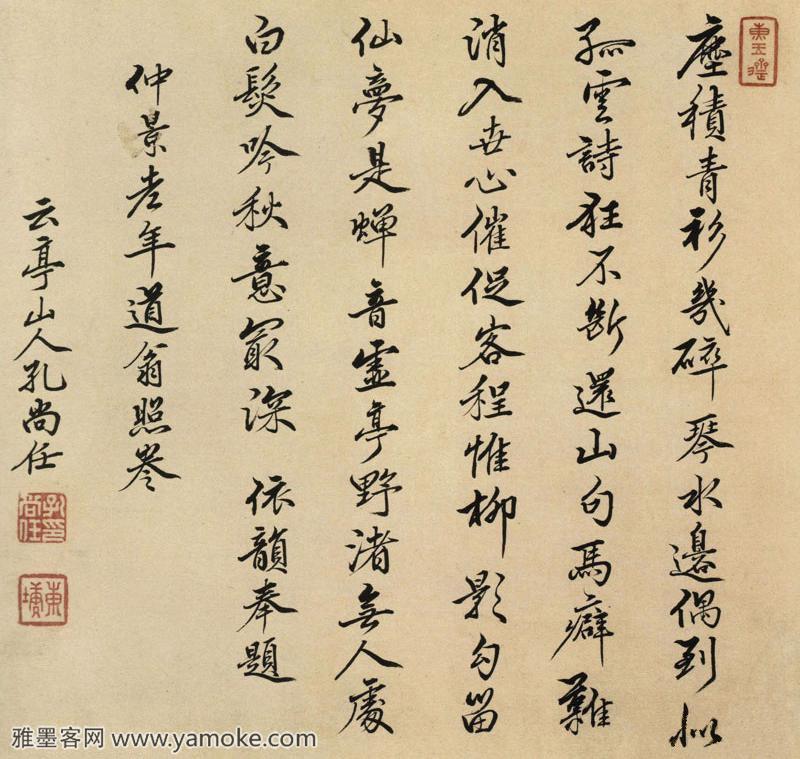 塵積青衫幾碎琴水邊偶到似
孤雲詩狂不斷還山句馬癖難
消入世心催促客程惟柳影勾留
仙夢是蟬音虛亭野渚無人處
白髮吟秋意最深 依韻奉題
仲景老年道翁照
云亭山人孔尚任
孔尚任印
東塘
雅墨客网 www.yamoke.com